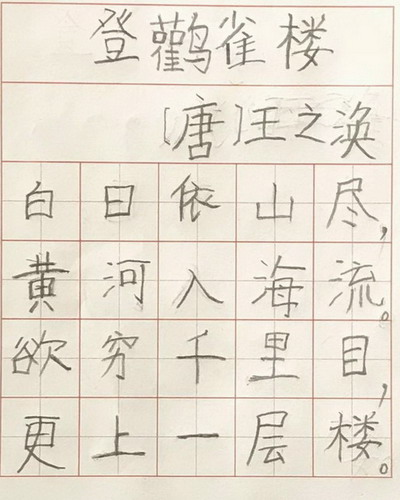 登鹳雀楼
[唐]王之涣
白日依山尽,
黄河入海流。
欲穷千里目,
更上一层楼。